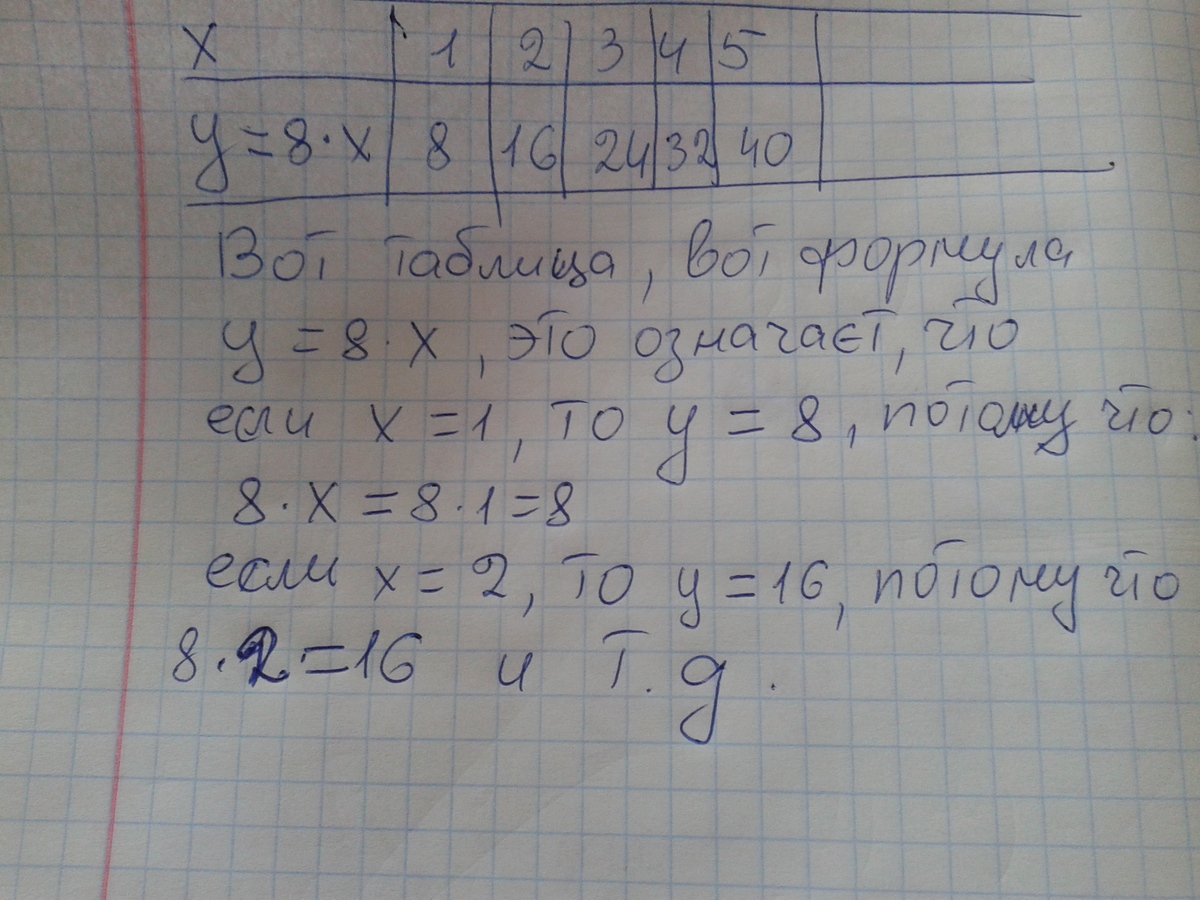 x 1 2 3 4 5
y = 8 · x 8 16 24 32 40
Вот таблица, вот формула
y = 8 · x, это означает, что
если x = 1, то y = 8, потому что:
8 · x = 8 · 1 = 8
если x = 2, то y = 16, потому что
8 · 2 = 16 и т. д.